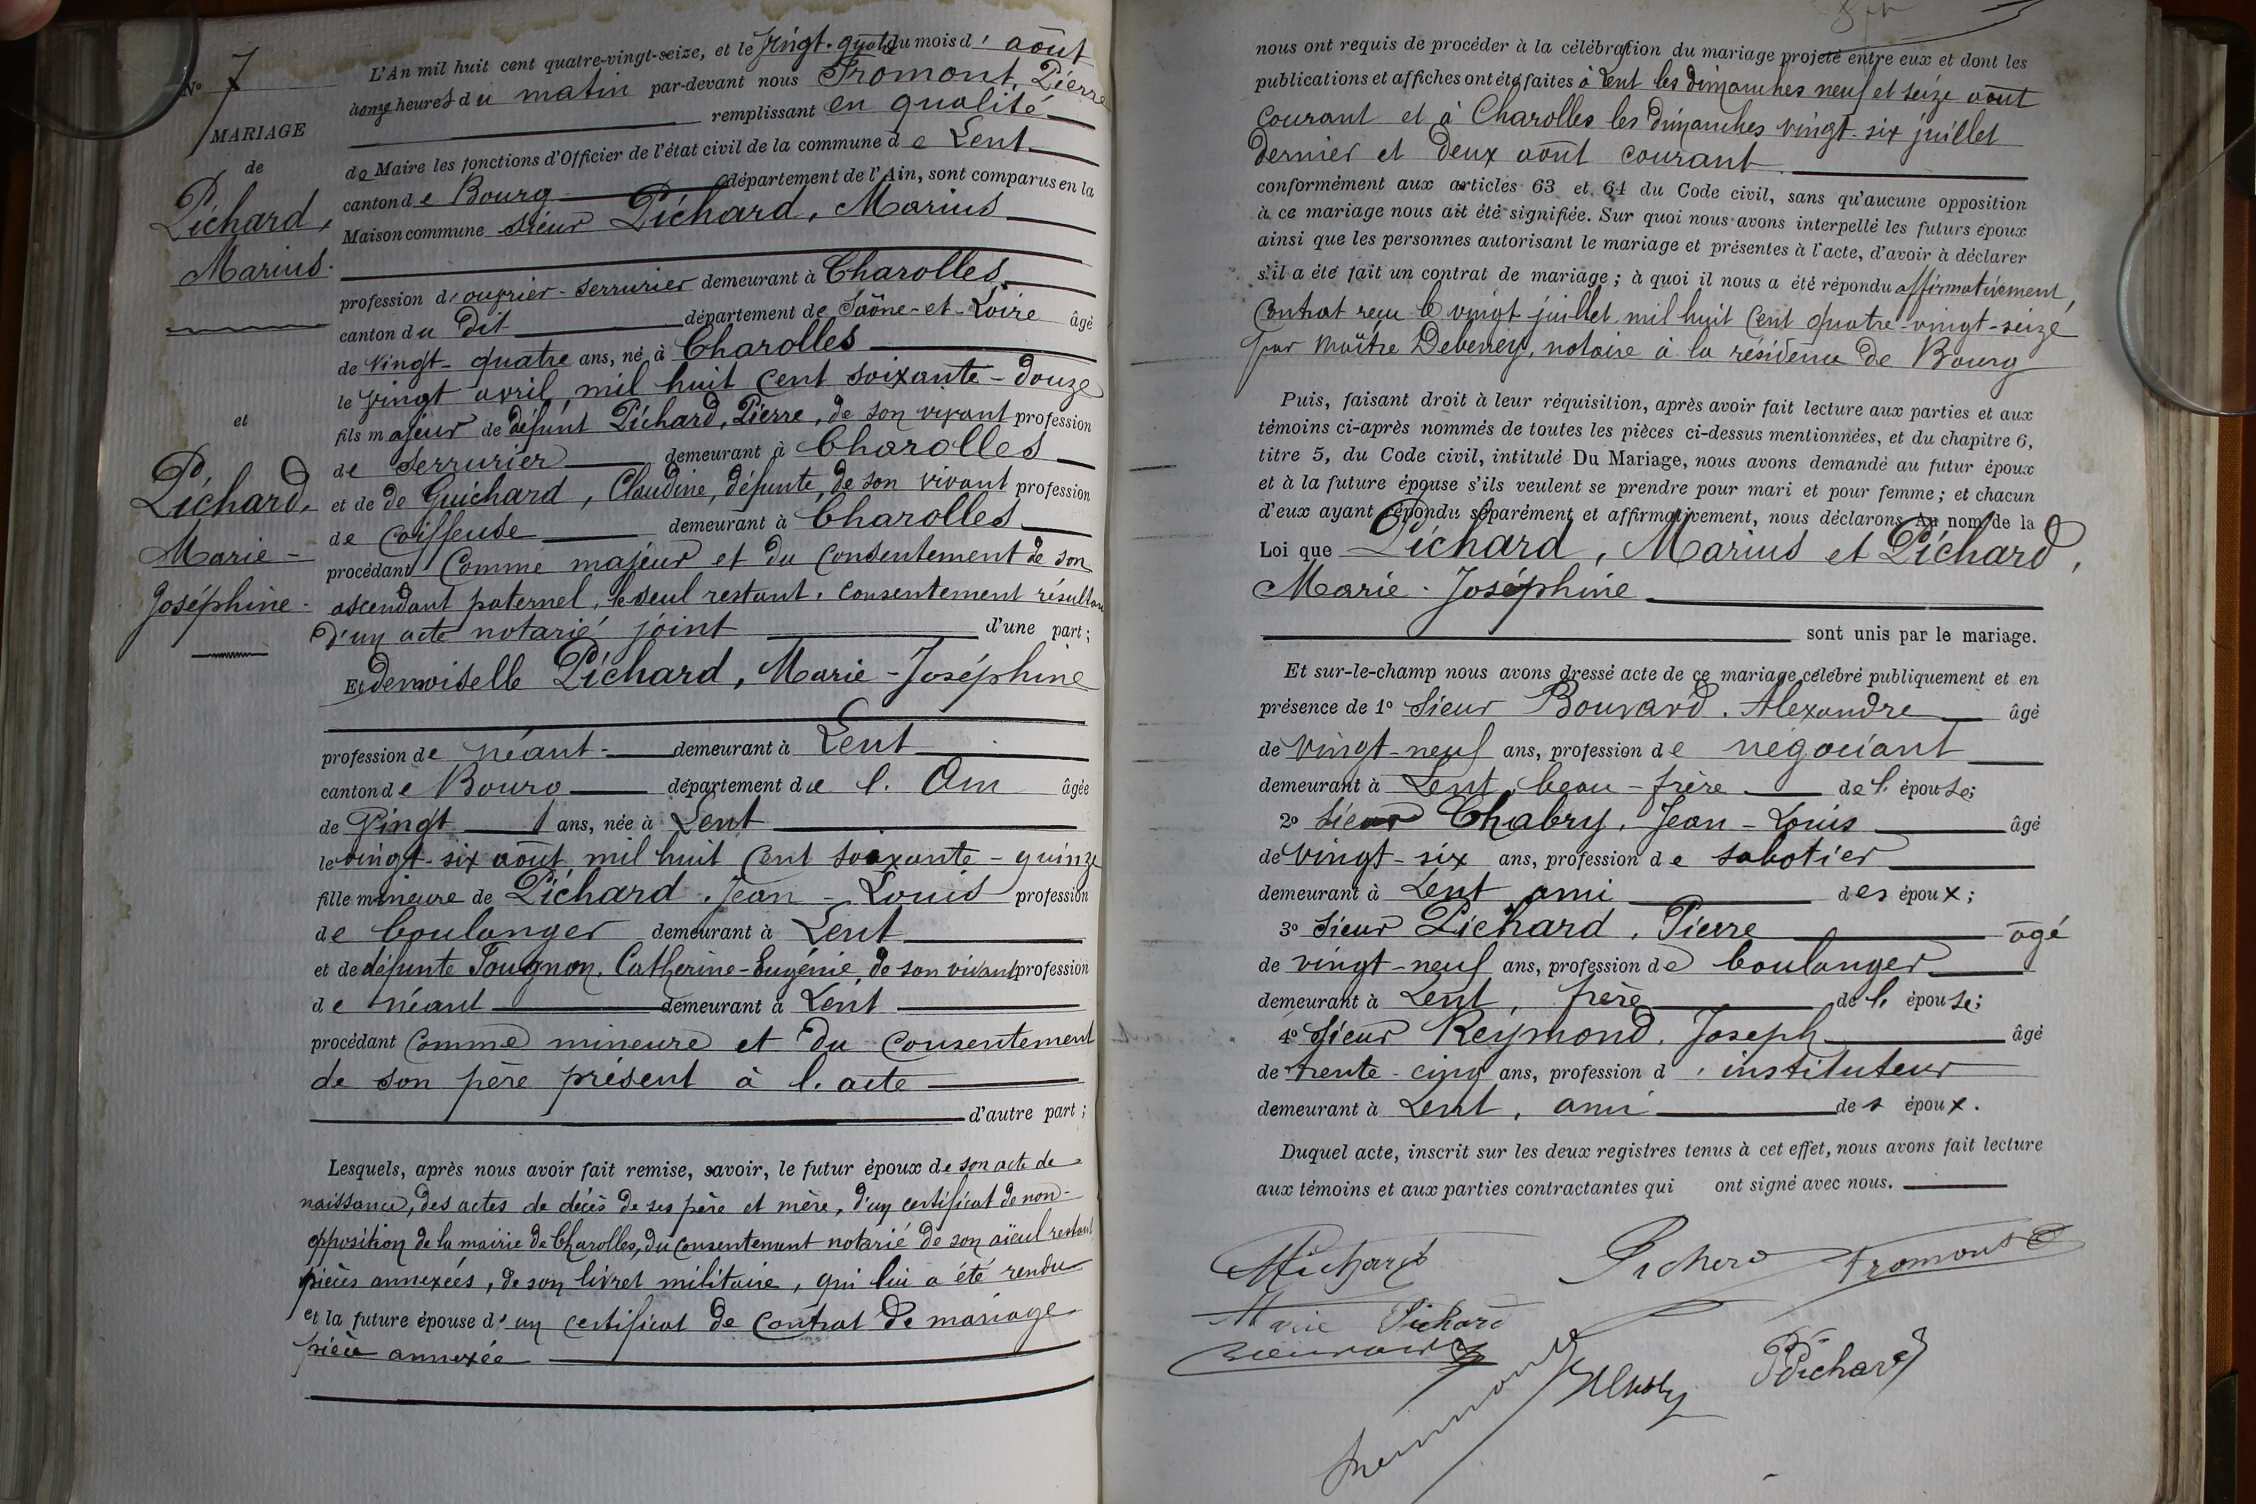 N° 7
MARIAGE
de
Pichard,
Marius.
et
Pichard,
Marie-
Joséphine.
L'An mil huit cent quatre-vingt-seize, et le vingt-quatre du mois d'août
onze heures du matin par-devant nous Fromont, Pierre
remplissant en qualité
de Maire les fonctions d'Officier de l'état civil de la commune de Lent
canton de Bourg département de l'Ain, sont comparus en la
Maison commune sieur Pichard, Marius
profession d'ouvrier-serrurier demeurant à Charolles
canton du dit département de Saône-et-Loire âgé
de vingt-quatre ans, né à Charolles
le vingt avril, mil huit cent soixante-douze
fils majeur de défunt Pichard, Pierre, de son vivant profession
de serrurier demeurant à Charolles
et de de Guichard, Claudine, défunte, de son vivant profession
de coiffeuse demeurant à Charolles
procédant comme majeur et du consentement de son
ascendant paternel, le seul restant, consentement résultant
d'un acte notarié joint d'une part;
Et demoiselle Pichard, Marie-Joséphine
profession de néant demeurant à Lent
canton de Bourg département de l'Ain âgée
de vingt ans, née à Lent
le vingt-six août mil huit cent soixante-quinze
fille mineure de Pichard, Jean-Louis profession
de boulanger demeurant à Lent
et de défunte Tougnon, Catherine-Eugénie, de son vivant profession
de néant demeurant à Lent
procédant comme mineure et du consentement
de son père présent à l'acte
d'autre part;
Lesquels, après nous avoir fait remise, savoir, le futur époux de son acte de
naissance, des actes de décès de ses père et mère, d'un certificat de non-
opposition de la mairie de Charolles, du consentement notarié de son aïeul restant
pièces annexées, de son livret militaire, qui lui a été rendu
et la future épouse d'un certificat de contrat de mariage
pièce annexée
nous ont requis de procéder à la célébration du mariage projeté entre eux et dont les
publications et affiches ont été faites à Lent les dimanches neuf et seize août
courant et à Charolles les dimanches vingt-six juillet
dernier et deux août courant
conformément aux articles 63 et 64 du Code civil, sans qu'aucune opposition
à ce mariage nous ait été signifiée. Sur quoi nous avons interpellé les futurs époux
ainsi que les personnes autorisant le mariage et présentes à l'acte, d'avoir à déclarer
s'il a été fait un contrat de mariage; à quoi il nous a été répondu affirmativement,
contrat reçu le vingt juillet mil huit cent quatre-vingt-seize
par Maître Debeney, notaire à la résidence de Bourg
Puis, faisant droit à leur réquisition, après avoir fait lecture aux parties et aux
témoins ci-après nommés de toutes les pièces ci-dessus mentionnées, et du chapitre 6,
titre 5, du Code civil, intitulé Du Mariage, nous avons demandé au futur époux
et à la future épouse s'ils veulent se prendre pour mari et pour femme; et chacun
d'eux ayant répondu séparément et affirmativement, nous déclarons Au nom de la
Loi que Pichard, Marius et Pichard,
Marie-Joséphine
sont unis par le mariage.
Et sur-le-champ nous avons dressé acte de ce mariage célébré publiquement et en
présence de 1° sieur Bouvard, Alexandre âgé
de vingt-neuf ans, profession de négociant
demeurant à Lent, beau-frère de l'épouse;
2° sieur Chabry, Jean-Louis âgé
de vingt-six ans, profession de sabotier
demeurant à Lent ami des époux;
3° sieur Pichard, Pierre âgé
de vingt-neuf ans, profession de boulanger
demeurant à Lent, frère de l'épouse;
4° sieur Reymond, Joseph âgé
de trente-cinq ans, profession d'instituteur
demeurant à Lent, ami des époux.
Duquel acte, inscrit sur les deux registres tenus à cet effet, nous avons fait lecture
aux témoins et aux parties contractantes qui ont signé avec nous.
MPichard Pichard Fromont
Marie Pichard
Bouvard
Reymond Chabry PPichard